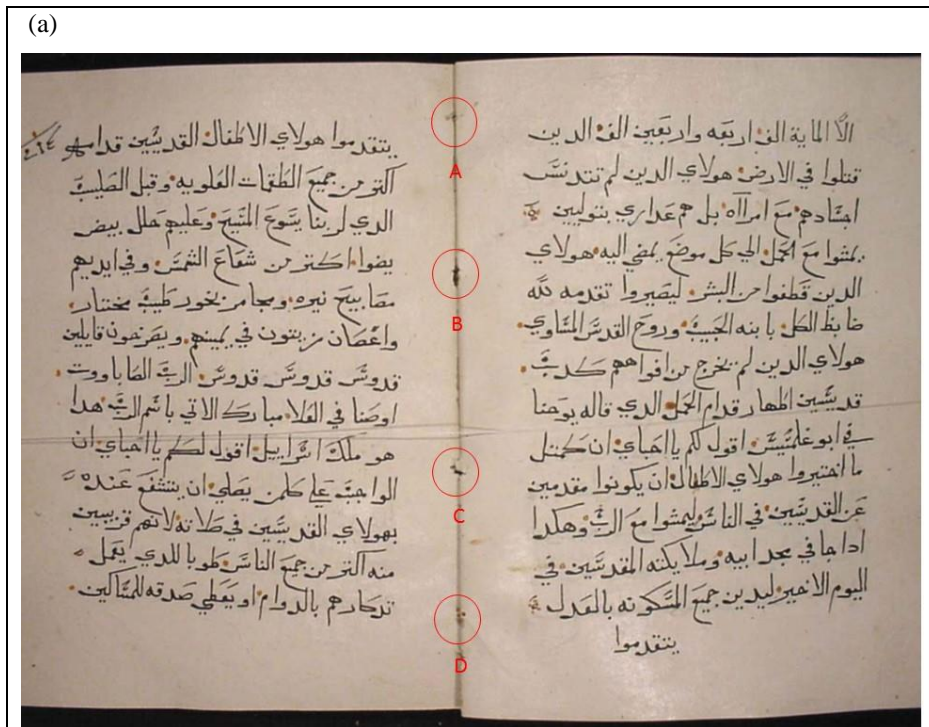 (a)
الّا الماية الف اربعه واربعين الف الدين
قتلوا في الارض هولاي الدين لم تتدنس
اجسادهم مع امراه بل هم عداري بتوليين
يمشوا مع الحمل الي كل موضع يمضي اليه هولاي
الدين قطفوا من البشر ليصيروا تقدمه لله
ضابط الكل بابنه الحبيب وروح القدس المساوي
هولاي الدين لم يخرج من افواههم كدب
قديسين اطهار قدام الحمل الدي قاله يوحنا
في ابوغلمسيس اقول لكم يا احباي ان كمتل
ما اختيروا هولاي الاطفال ان يكونوا مقدمين
عن القديسين في الناس ليمشوا مع الرب وهكدا
اداجا في مجد ابيه وملايكته المقدسين في
اليوم الاخير ليدين جميع المسكونه بالعدل
يتقدموا
يتقدموا هولاي الاطفال القديسين قدامهم
اكتر من جميع الطقمات العلويه وقبل الصليب
الدي لربنا يسوع المسيح وعليهم حلل بيض
يضوا اكتر من شعاع الشمس وفي ايديهم
مصابيح نيره ومجامر بخور طيب مختار
واغصان زيتون في يمينهم ويصرخون قايلين
قدوس قدوس قدوس الرب الصاباووت
اوصنا في العلا مبارك الاتي باسم الرب هدا
هو ملك اسراييل اقول لكم يا احباي ان
الواجب علي كلمن يصلي ان يتشفع عنده
بهولاي القديسين في صلاته لانهم قريبين
منه اكتر من جميع الناس طوبا للدي يعمل
تدكارهم بالدوام او يعطي صدقه للمساكين
A
B
C
D